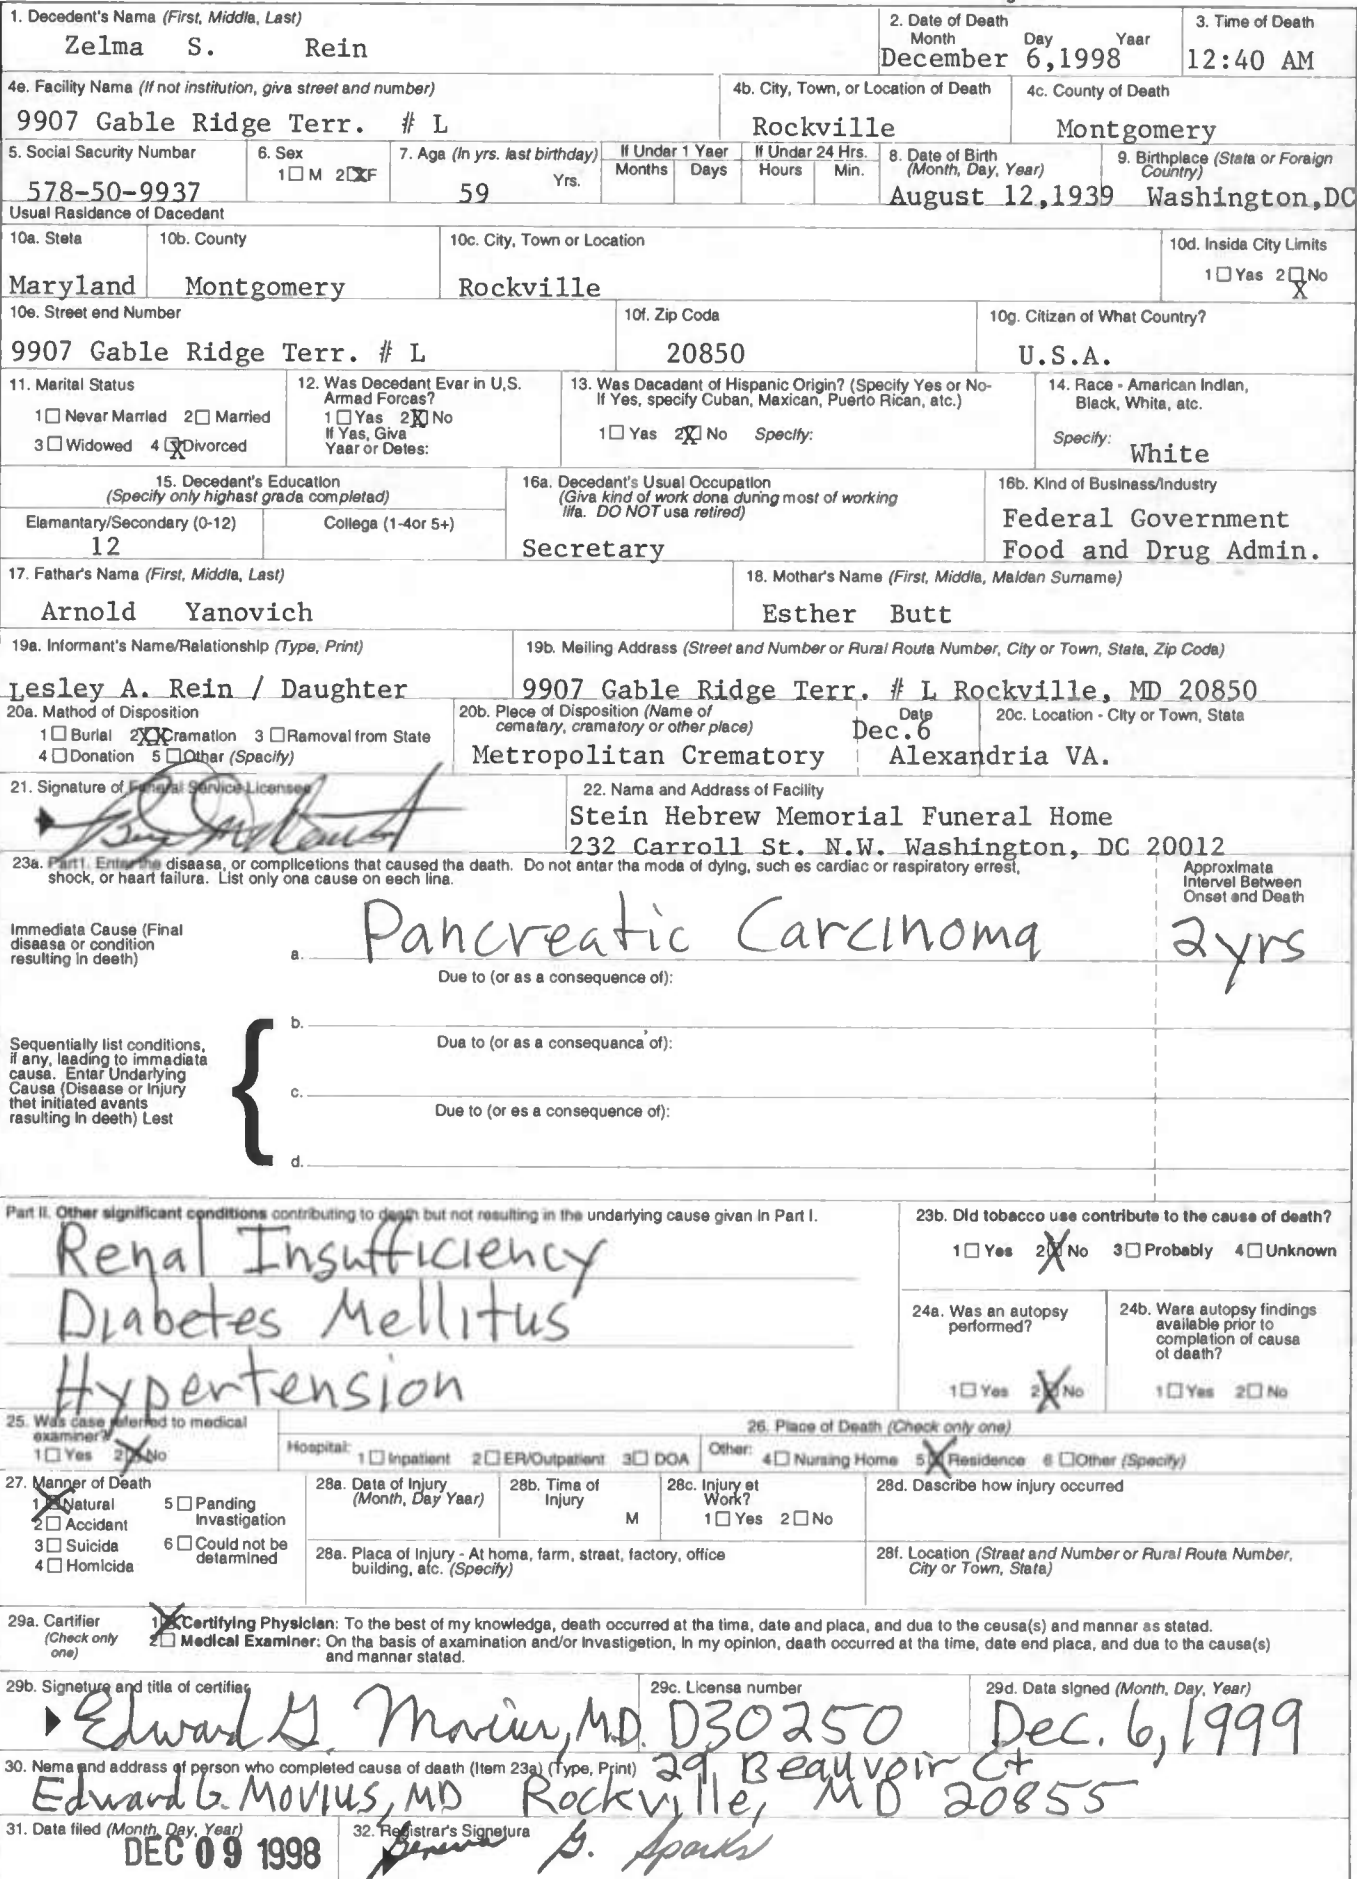 1. Decedent's Name (First, Middle, Last)
Zelma S. Rein
2. Date of Death
Month Day Yaar
December 6,1998
3. Time of Death
12:40 AM
4e. Facility Name (If not institution, giva street and number)
9907 Gable Ridge Terr. # L
4b. City, Town, or Location of Death
Rockville
4c. County of Death
Montgomery
5. Social Sacurity Numbar
578-50-9937
6. Sex
1☐ M 2☒F
7. Age (In yrs. last birthday)
59 Yrs.
If Under 1 Yaer
Months Days
If Under 24 Hrs.
Hours Min.
8. Date of Birth
(Month, Day, Year)
August 12,1939
9. Birthplace (Stata or Foraign
Country)
Washington,DC
Usual Rasidance of Dacedant
10a. Steta
Maryland
10b. County
Montgomery
10c. City, Town or Location
Rockville
10d. Insida City Limits
1☐Yas 2☒No
10e. Street end Number
9907 Gable Ridge Terr. # L
10f. Zip Coda
20850
10g. Citizan of What Country?
U.S.A.
11. Marital Status
1☐ Nevar Marriad 2☐ Married
3☐ Widowed 4☒Divorced
12. Was Decedant Evar in U,S.
Armad Forcas?
1☐Yas 2☒No
If Yas, Giva
Yaar or Detes:
13. Was Dacadant of Hispanic Origin? (Specify Yes or No-
If Yes, specify Cuban, Maxican, Puerto Rican, atc.)
1☐ Yas 2☒ No Specify:
14. Race - Amarican Indlan,
Black, Whita, atc.
Specify: White
15. Decedant's Education
(Specify only highast grada complatad)
Elamantary/Secondary (0-12)
12
Collega (1-4or 5+)
16a. Decedant's Usual Occupation
(Giva kind of work dona during most of working
lifa. DO NOT usa retired)
Secretary
16b. Kind of Businass/Industry
Federal Government
Food and Drug Admin.
17. Fathar's Nama (First, Middla, Last)
Arnold Yanovich
18. Mothar's Name (First, Middla, Maldan Sumame)
Esther Butt
19a. Informant's Name/Ralationship (Typa, Print)
Lesley A. Rein / Daughter
19b. Meiling Address (Street and Number or Rural Routa Number, City or Town, Stata, Zip Coda)
9907 Gable Ridge Terr. # L Rockville, MD 20850
20a. Mathod of Disposition
1☐ Burial 2☒Cramation 3☐Ramoval from State
4☐Donation 5☐Othar (Specify)
20b. Plece of Disposition (Name of
cematary, cramatory or other place)
Metropolitan Crematory
Date
Dec.6
20c. Location - City or Town, Stata
Alexandria VA.
21. Signature of Funeral Service Licensee
22. Name and Address of Facility
Stein Hebrew Memorial Funeral Home
232 Carroll St. N.W. Washington, DC 20012
23a. Part I. Enter the disaasa, or complicetions that causad tha daath. Do not antar tha moda of dying, such es cardiac or raspiratory errest,
shock, or haart failura. List only ona cause on eech lina.
Approximata
Intervel Between
Onset end Death
Immediata Cause (Final
disaasa or condition
resulting in deeth)
a. Pancreatic Carcinoma 2yrs
Due to (or as a consequence of):
b.
Dua to (or as a consequanca of):
c.
Due to (or es a consequence of):
d.
Sequentially list conditions,
if any, laading to immadiata
causa. Entar Undarlying
Causa (Disaase or Injury
thet initiated avants
rasulting in deeth) Lest
Part II. Other significant conditions contributing to death but not resulting in the underlying cause givan in Part I.
Renal Insufficiency
Diabetes Mellitus
Hypertension
23b. Did tobacco use contribute to the causa of death?
1☐ Yes 2☒ No 3☐ Probably 4☐ Unknown
24a. Was an autopsy
performed?
1☐ Yes 2☒No
24b. Wara autopsy findings
available prior to
complation of causa
of daath?
1☐Yes 2☐ No
25. Was case referred to medical
examiner?
1☐ Yes 2☒No
26. Place of Death (Check only one)
Hospital: 1☐Inpatient 2☐ER/Outpatient 3☐ DOA
Other: 4☐ Nursing Home 5☒Residence 6☐Other (Specify)
27. Manner of Death
1☒Natural
2☐ Accidant
3☐ Suicida
4☐ Homicida
5☐ Panding
Invastigation
6☐ Could not be
detarmined
28a. Data of Injury
(Month, Day Yaar)
28b. Tima of
Injury
M
28c. Injury et
Work?
1☐ Yes 2☐ No
28d. Dascribe how injury occurred
28a. Placa of Injury - At homa, farm, straat, factory, office
building, atc. (Specify)
28f. Location (Straat and Number or Rural Routa Number,
City or Town, Stata)
29a. Cartifiar
(Check only
one)
1☒Certifying Physician: To the best of my knowladga, death occurred at tha tima, date and placa, and dua to the ceusa(s) and mannar as stated.
2☐ Medical Examiner: On tha basis of axamination and/or Invastigetion, in my opinion, daath occurred at tha time, date end placa, and due to tha causa(s)
and mannar statad.
29b. Signature and title of certifiar
Edward G. Movius, M.D.
29c. Licensa number
D30250
29d. Data signed (Month, Day, Year)
Dec. 6, 1999
30. Nema and address of person who completed cause of daath (Item 23a) (Type, Print) 29 Beauvoir Ct
Edward G. Movius, MD Rockville, MD 20855
31. Data filed (Month, Day, Year)
DEC 09 1998
32. Registrar's Signetura
Geneva G. Sparks